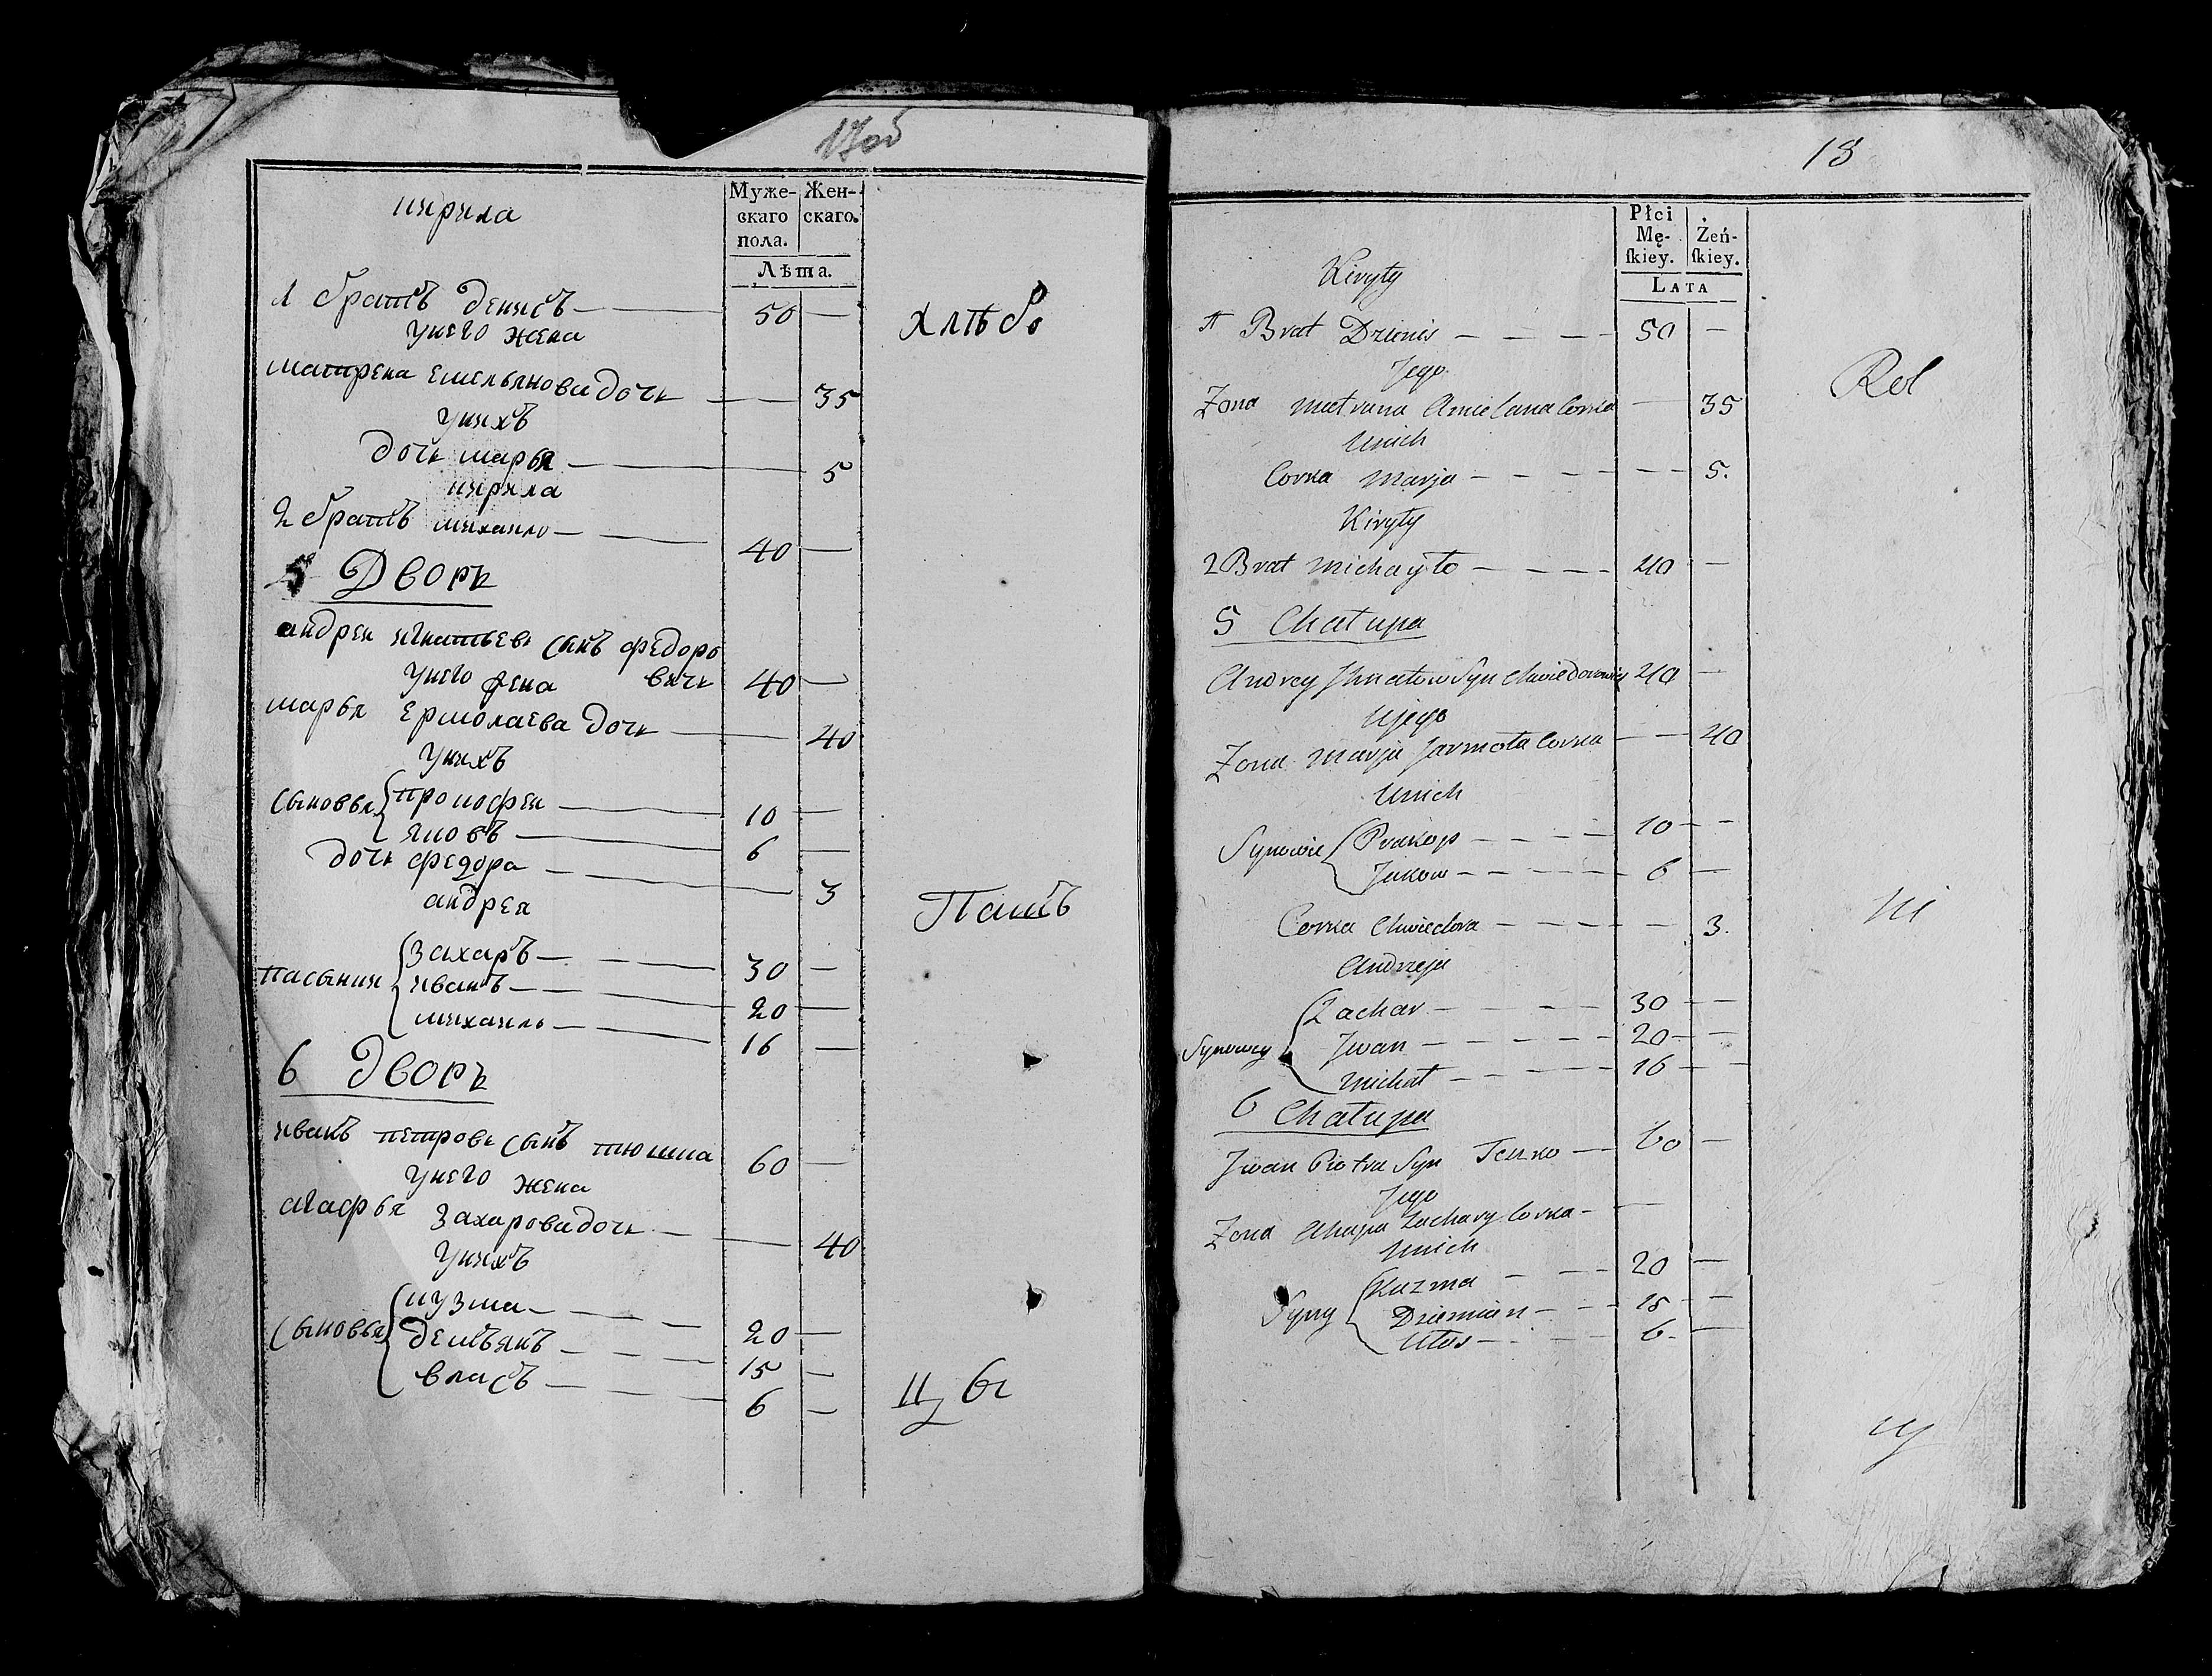 17об
Муже-
скаго
пола.
Жен-
скаго.
Лѣта.
кирила
1 братъ денисъ — 50 —
унего жена
матрена емельянова дочь — 35
унихъ
дочь марья — 5
кирила
2 братъ михаило — 40 —
5 Дворъ
андреи игнатьевъ сынъ федоро
унего жена вичь 40 —
марья ермолаева дочь — 40
унихъ
сыновья прокофеи — 10 —
яковъ — 6 —
дочь федора — 3
андрея
пасынки захаръ — 30 —
иванъ — 20 —
михаилъ — 16 —
6 Дворъ
иванъ петровъ сынъ 60 —
унего жена
агафья захарова дочь — 40
унихъ
сыновья кузма — 20 —
демьянъ — 15 —
власъ — 6 —
хлѣбо
Паш
цы
18
Płci
Mę-
ſkiey.
Żeń-
ſkiey.
LATA
Kiryły
Brat Dzionis — 50 —
Jego
Zona Matruna Amielana Corka — 35
Unich
Corka Marja — 5.
Kiryły
2 Brat Michayło — 40 —
5 Chałupa
Andrey Jhnatow Syn Chwiedorowicz 40 —
Ujego
Zona Marja Jarmoła Corka — 40
Unich
Synowie Prakop — 10 —
Jakow — 6 —
Corka Chwiedora — 3.
Andrzeja
Synowcy Zachar — 30 —
Jwan — 20 —
Michał — 16 —
6 Chałupa
Jwan Piotra Syn — 60 —
Jego
Zona Ahapa Zachary Corka —
Unich
Syny Kuzma — 20 —
Dziemian — 15 —
Ułas — 6 —
Rol
ni
cy